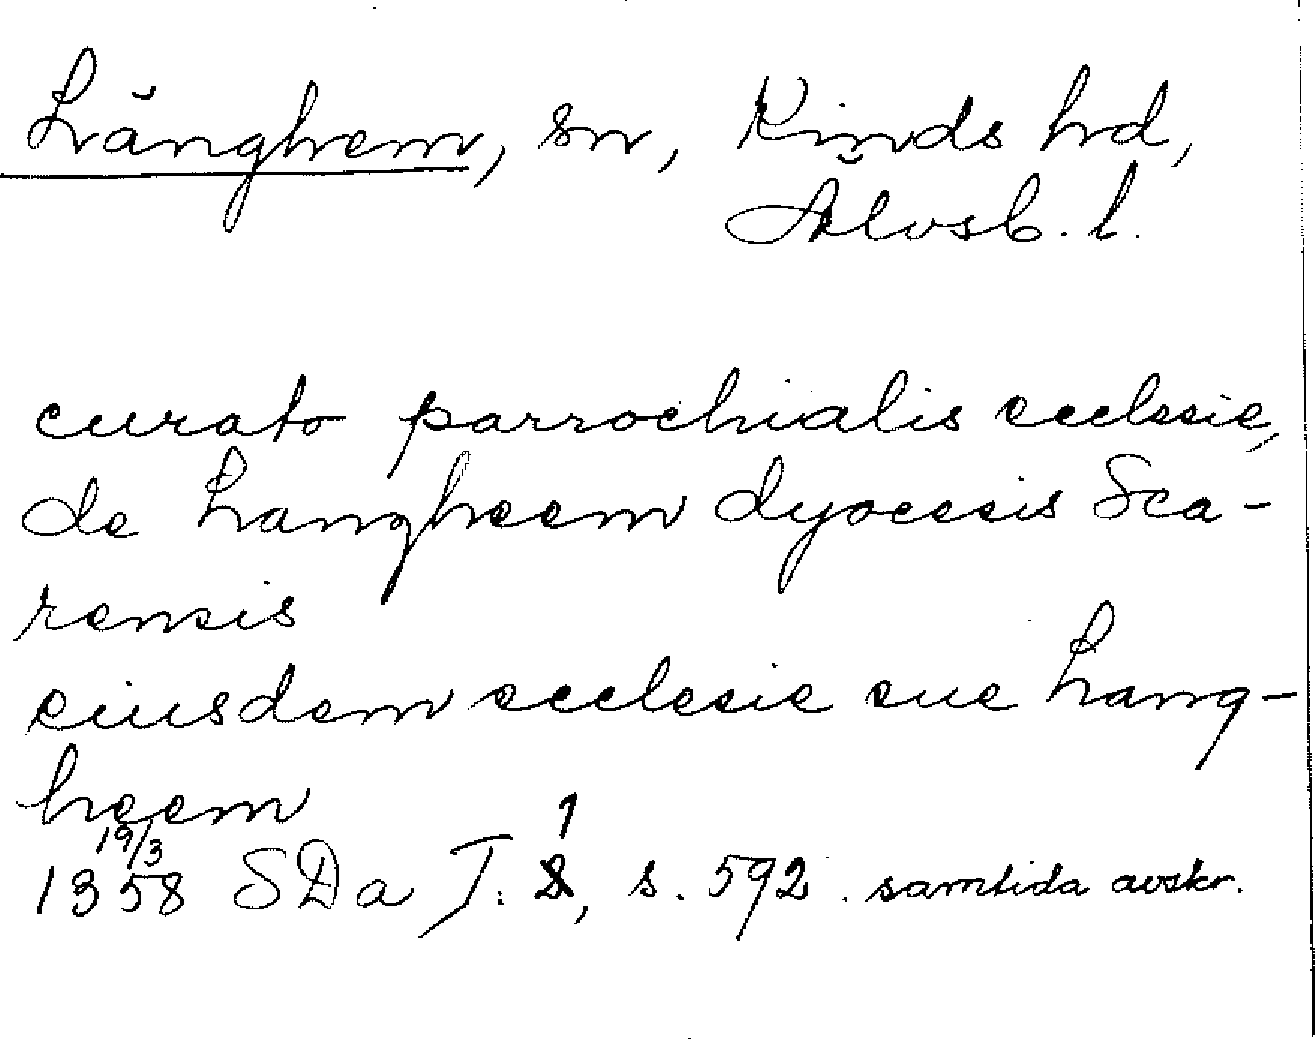 Länghem, sn, Kinds hd,
Älvsb. l.
curato parrochialis ecclesie,
de Langheem dyocesis Sca-
rensis
eiusdem ecclesie sue Lang-
heem
19/3 1
1358 SDa I: 2, s. 592. samtida avskr.